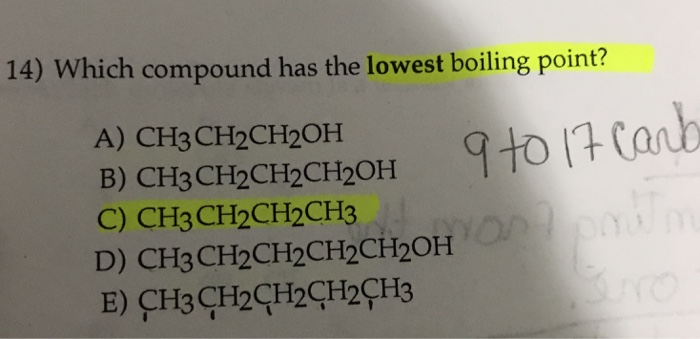 14) Which compound has the lowest boiling point?
A) CH3CH2CH2OH
9 to 17 Carb
B) CH3CH2CH2CH2OH
C) CH3CH2CH2CH3
D) CH3CH2CH2CH2CH2OH
E) CH3CH2CH2CH2CH3